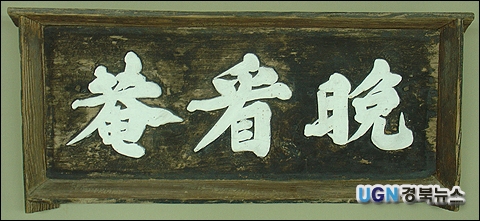 晩看菴
UGN경북뉴스